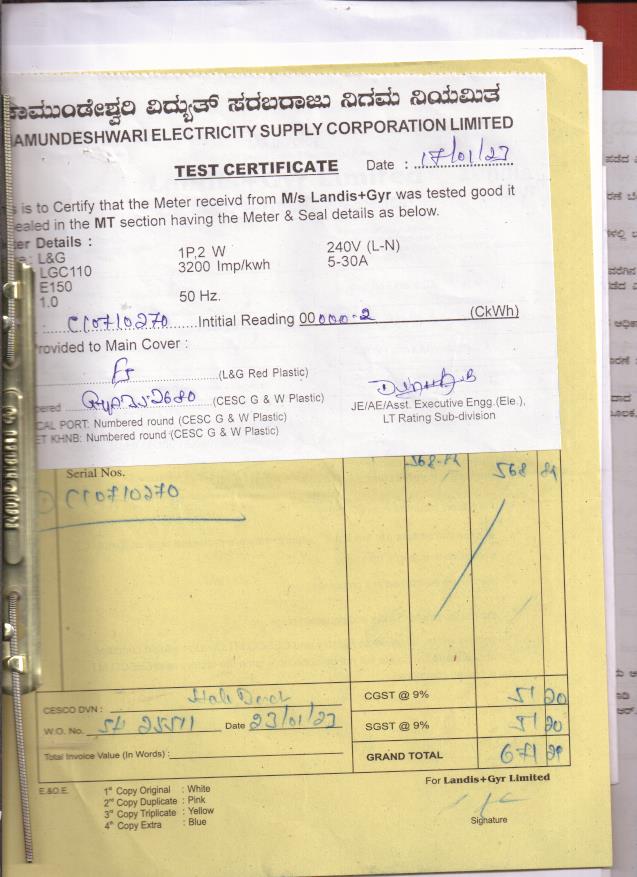 ಾಮುಂಡೇಶ್ವರಿ ವಿದ್ಯುತ್ ಸರಬರಾಜು ನಿಗಮ ನಿಯಮಿತ
AMUNDESHWARI ELECTRICITY SUPPLY CORPORATION LIMITED
TEST CERTIFICATE Date : 17/01/23
s is to Certify that the Meter receivd from M/s Landis+Gyr was tested good it
ealed in the MT section having the Meter & Seal details as below.
ter Details :
: L&G 1P,2 W 240V (L-N)
LGC110 3200 Imp/kwh 5-30A
E150
1.0 50 Hz.
: C10710270 Intitial Reading 00000.2 (CkWh)
rovided to Main Cover :
(L&G Red Plastic)
bered (CESC G & W Plastic)
JE/AE/Asst. Executive Engg.(Ele.),
CAL PORT: Numbered round (CESC G & W Plastic)
LT Rating Sub-division
ET KHNB: Numbered round (CESC G & W Plastic)
Serial Nos. 568.84 568 84
C10710270
CESCO DVN : CGST @ 9% 51 20
W.O. No. Date 23/01/23 SGST @ 9% 51 20
Total Invoice Value (In Words) : GRAND TOTAL 671
E.&O.E. For Landis+Gyr Limited
1st Copy Original : White
2nd Copy Duplicate : Pink
3rd Copy Triplicate : Yellow
4th Copy Extra : Blue
Signature